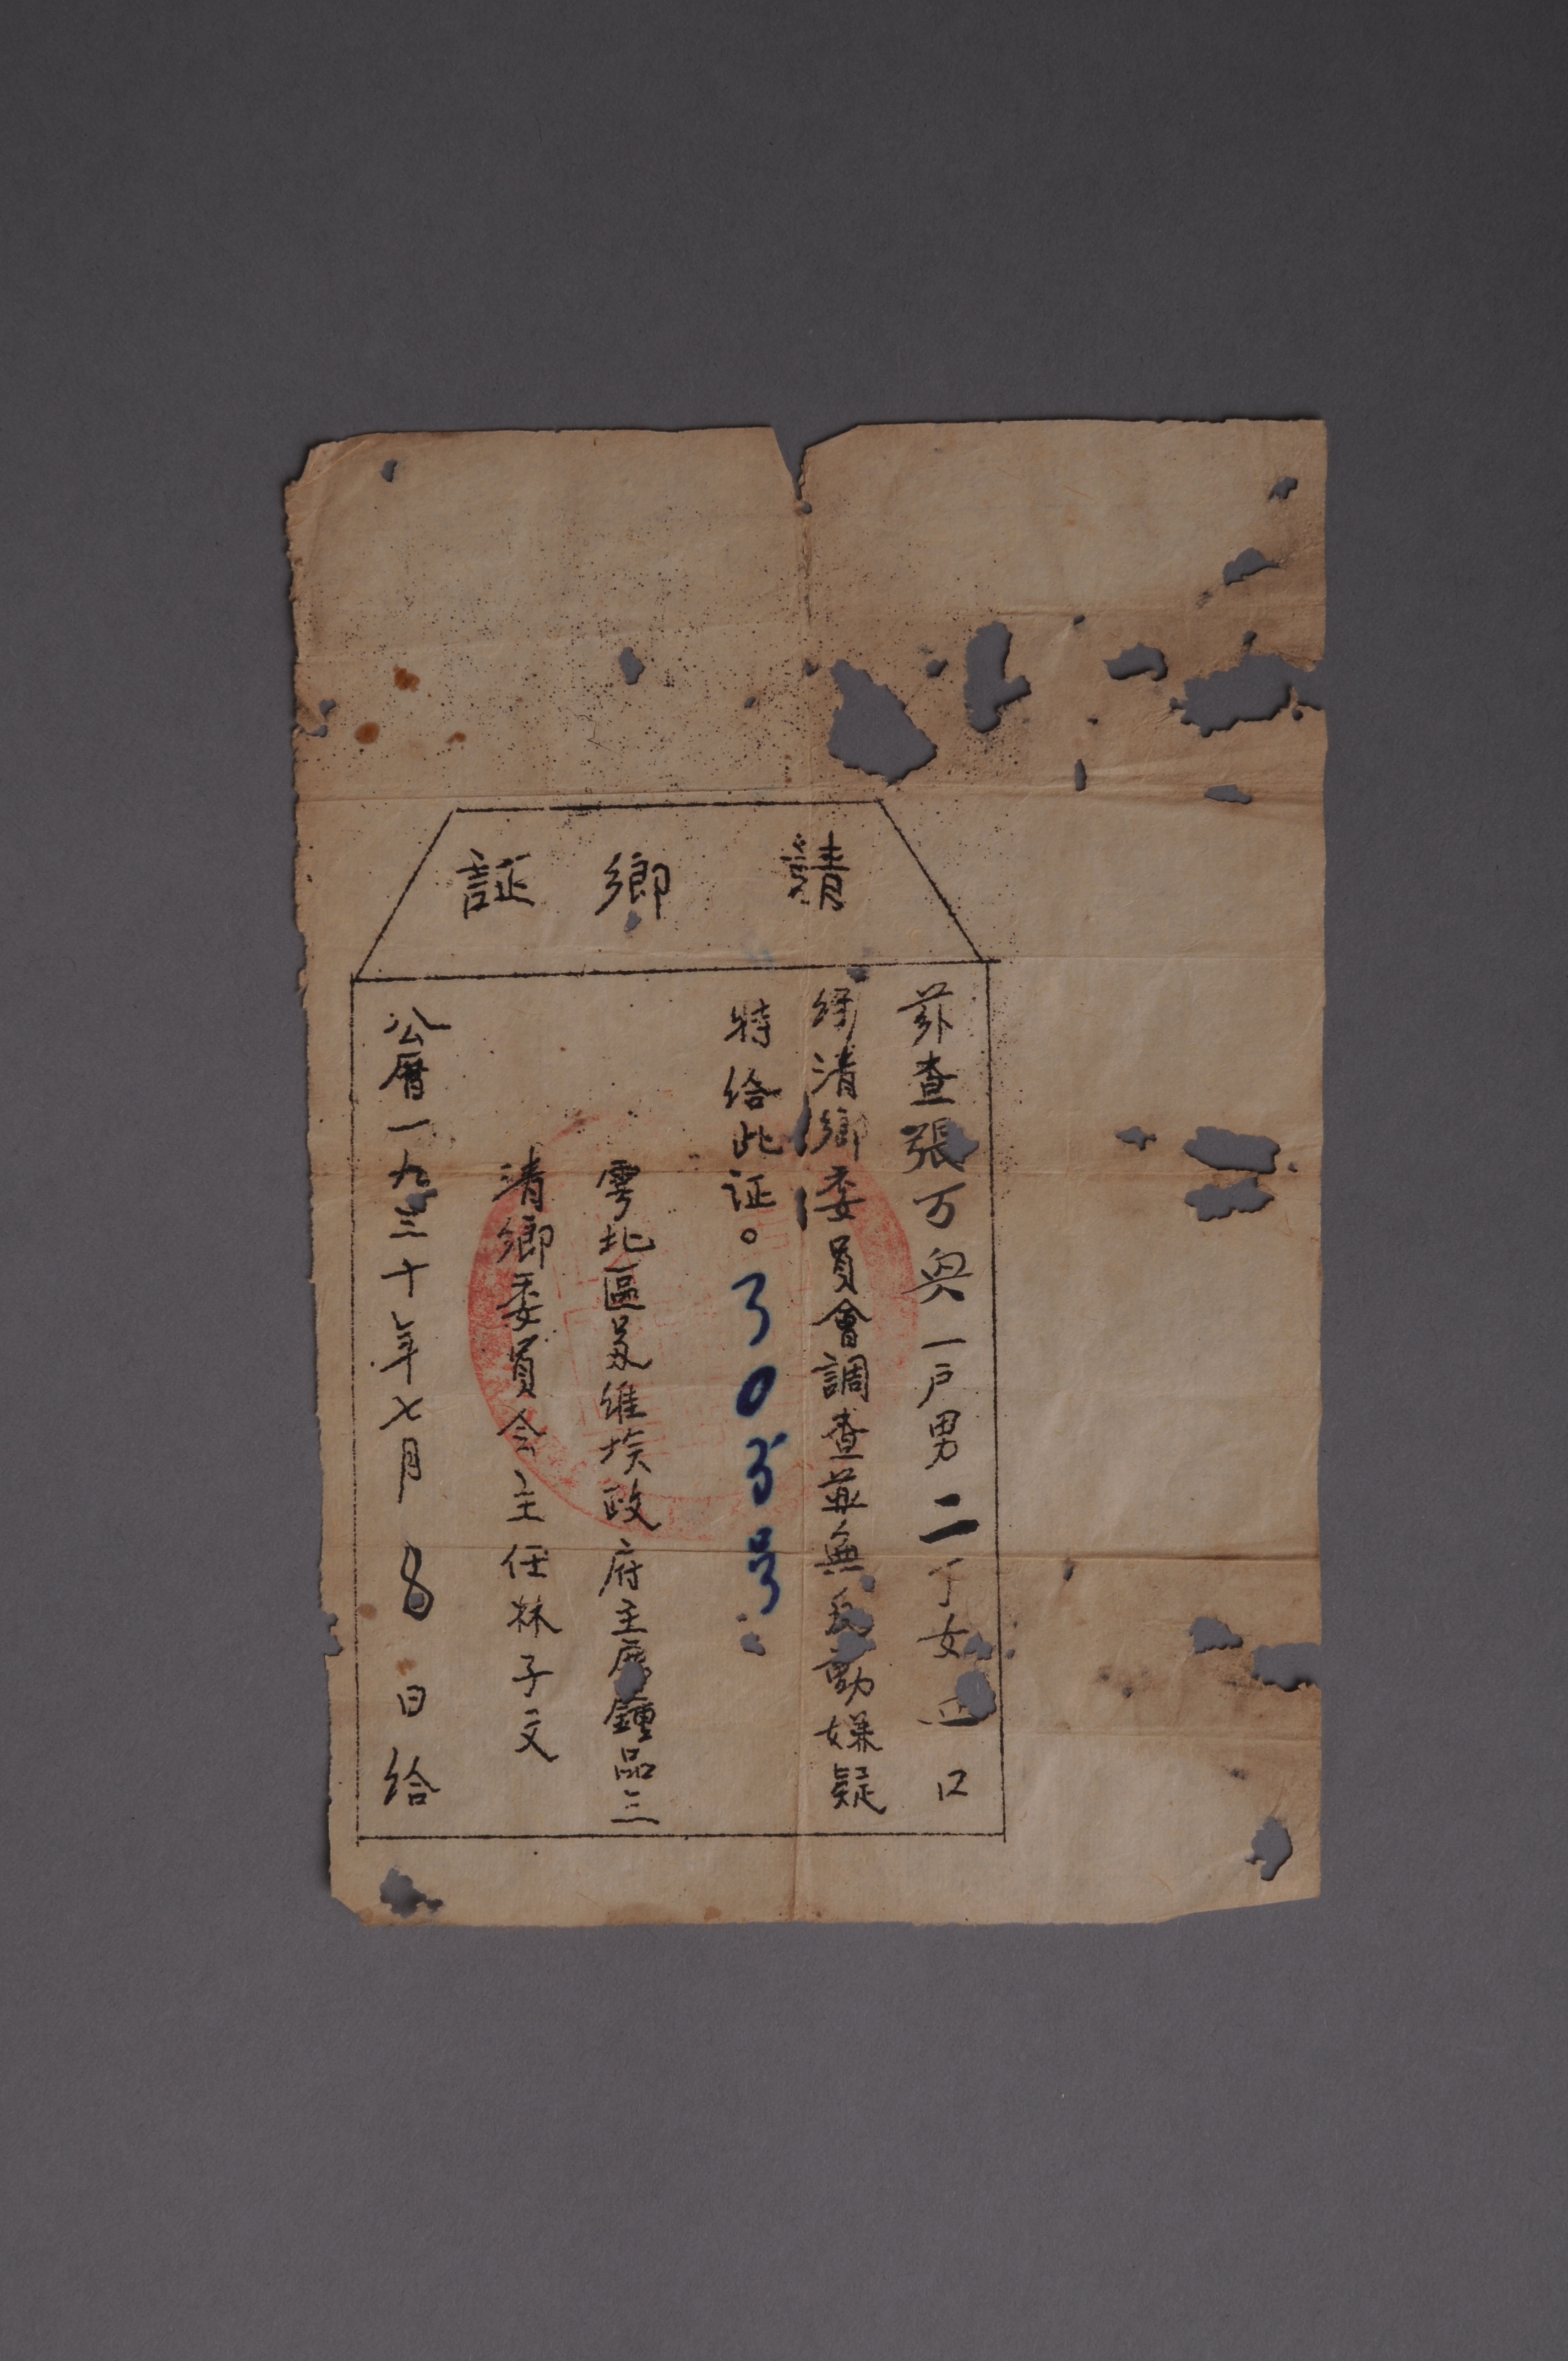 清鄉証
茲查張万兴一户男二丁女四口
經清鄉委員會調查並無反動嫌疑
特给此证。303号
雲北區苏維埃政府主席鍾品三
清鄉委員会主任林子文
公曆一九三十年七月8日给